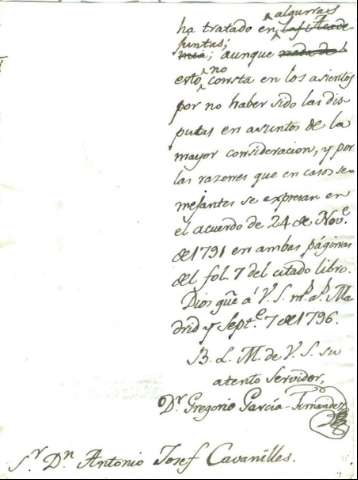 algunas
ha tratado en
juntas; aunque
esto no consta en los asientos
por no haber sido las dis-
putas en asuntos de la
mayor consideracion, y por
las razones que en casos se-
mejantes se expresan en
el acuerdo de 24 de Nov.e
de 1791 en ambas páginas
del fol. 7 del citado libro.
Dios gũe á V.S. m.s a.s Ma-
drid y Sept.e 7 de 1796.
B. L. M. de V. S. su
atento Servidor,
D.r Gregorio García Fernández
S.r D.n Antonio Josef Cavanilles.